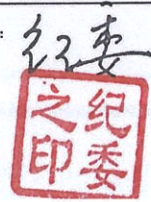 ：纪委
纪委
之印